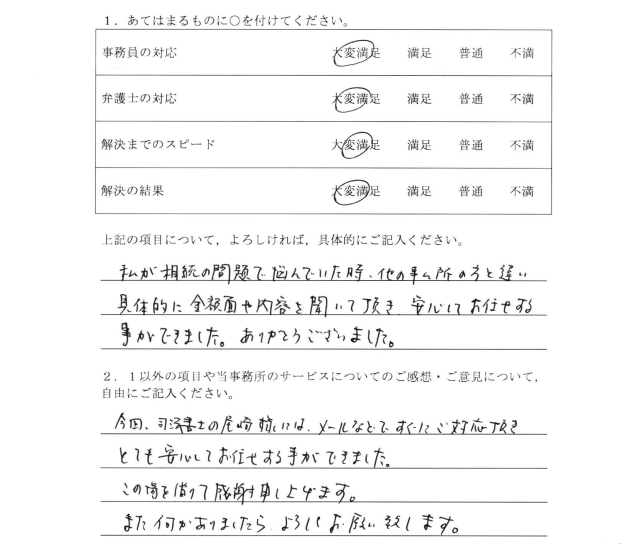 １．あてはまるものに○を付けてください。
事務員の対応 大変満足 満足 普通 不満
弁護士の対応 大変満足 満足 普通 不満
解決までのスピード 大変満足 満足 普通 不満
解決の結果 大変満足 満足 普通 不満
上記の項目について，よろしければ，具体的にご記入ください。
私が相続の問題で悩んでいた時、他の事ム所の方と違い
具体的に金額面や内容を聞いて頂き、安心してお任せする
事ができました。ありがとうございました。
２．１以外の項目や当事務所のサービスについてのご感想・ご意見について，
自由にご記入ください。
今回、司法書士の尾崎様には、メールなどですぐにご対応頂き
とても安心してお任せする事ができました。
この場を借りて感謝申し上げます。
また何かありましたら、よろしくお願い致します。